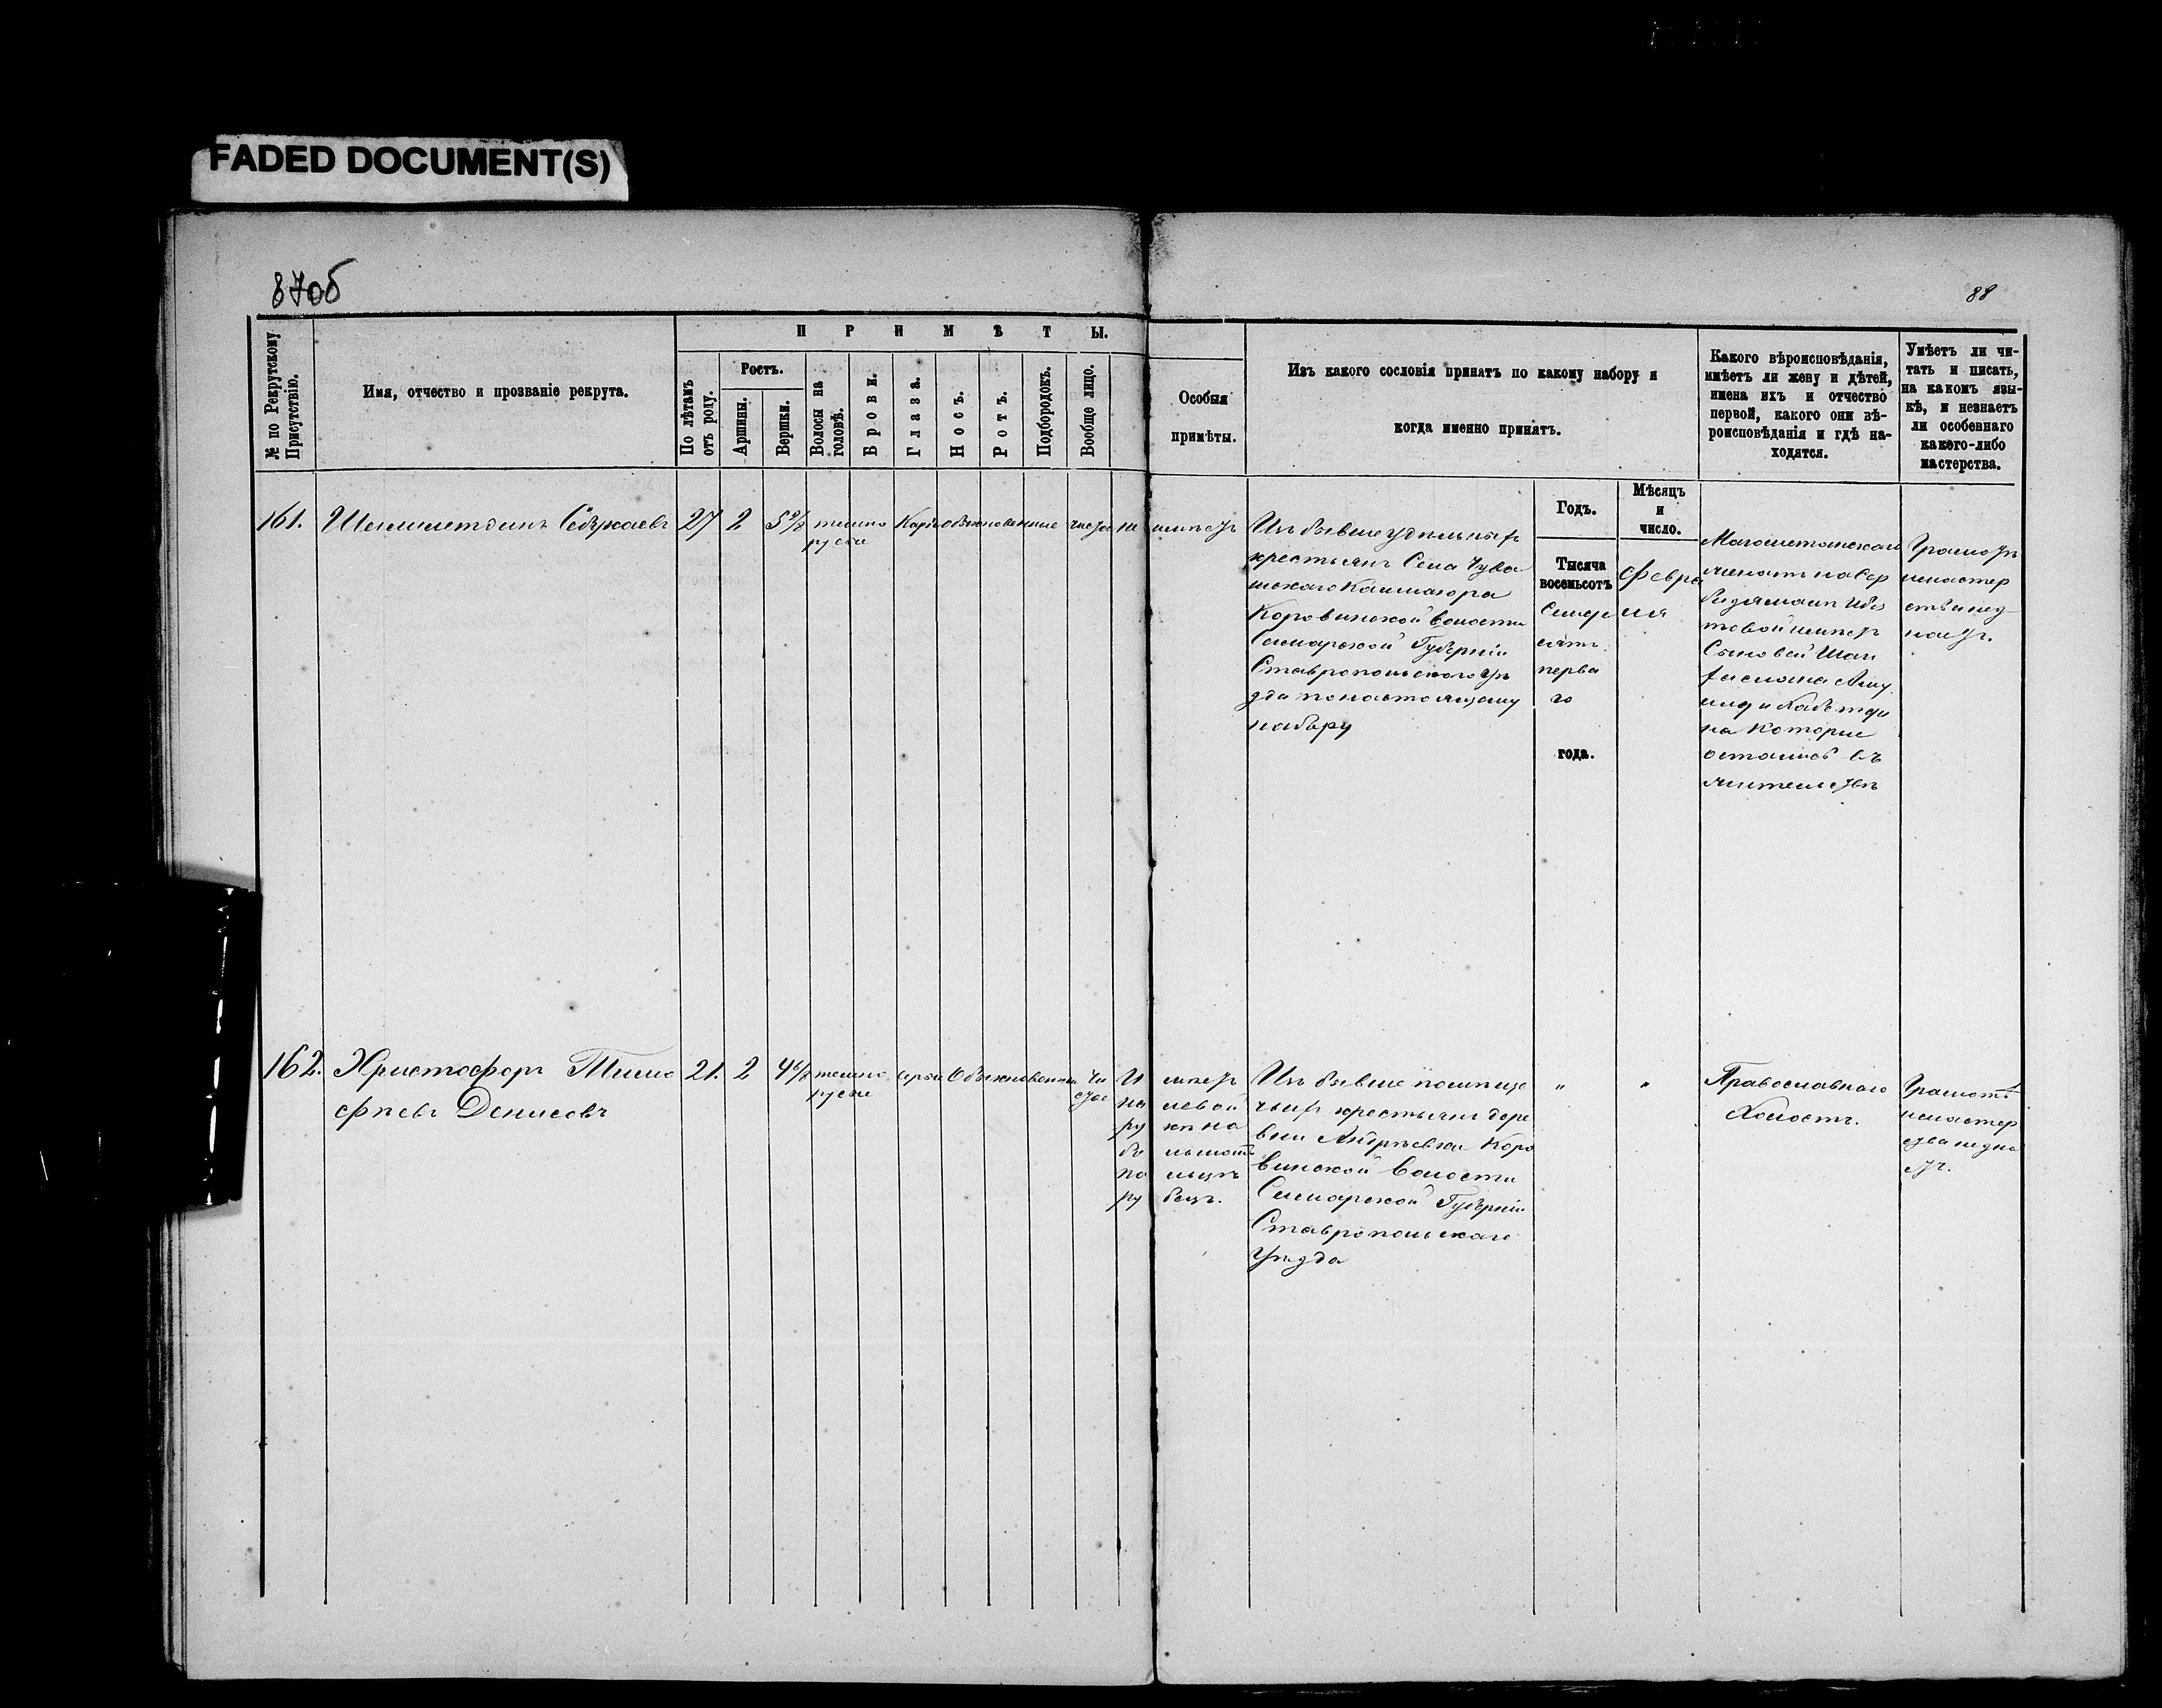 FADED DOCUMENT(S)
87об
88
№ по Рекрутскому Присутствію.
Имя, отчество и прозваніе рекрута.
ПРИМѢТЫ.
По лѣтамъ отъ роду.
Ростъ.
Аршины.
Вершки.
Волосы на головѣ.
Брови.
Глаза.
Носъ.
Ротъ.
Подбородокъ.
Вообще лицо.
Особыя
примѣты.
Изъ какого сословія принятъ по какому набору и
когда именно принятъ.
Какого вѣроисповѣданія,
имѣетъ ли жену и дѣтей,
имена ихъ и отчество
первой, какого они вѣ-
роисповѣданія и гдѣ на-
ходятся.
Умѣетъ ли чи-
тать и писать,
на какомъ язы-
кѣ, и незнаетъ
ли особеннаго
какого-либо
мастерства.
Годъ.
Мѣсяцъ
и
число.
161.
27
2
темно
русые
Карiе
обыкновенные
чистое
не имѣетъ
Изъ бывше удѣльныхъ
крестьянъ Села Чува
шскаго
Коровинской волости
Самарской Губерніи
Ставропольскаго уѣ
зда по настоящему
набору
Тысяча
восемьсотъ
Семде
сятъ
перва
го
года.
Февра
ля
Магометанскаго
женатъ на
имѣетъ
Сыновей
на которые
остались въ
жительствѣ
Грамотѣ
и мастер
ства не з
наетъ.
162.
Христофоръ Тимо
фѣевъ Денисовъ
21.
2
4 6/8
темно
русые
серые
Обыкновенные
чи
стое
Имѣетъ
на левой
ру кѣ на
бо льшомъ
па льцѣ
ру бецъ.
Изъ бывше помѣще
чьихъ крестьянъ дере
вни Андрѣевки Коро
винской волости
Самарской Губерніи
Ставропольскаго
Уѣзда
"
"
Православнаго
Холостъ.
Грамотѣ
и мастер
ства не зна
етъ.